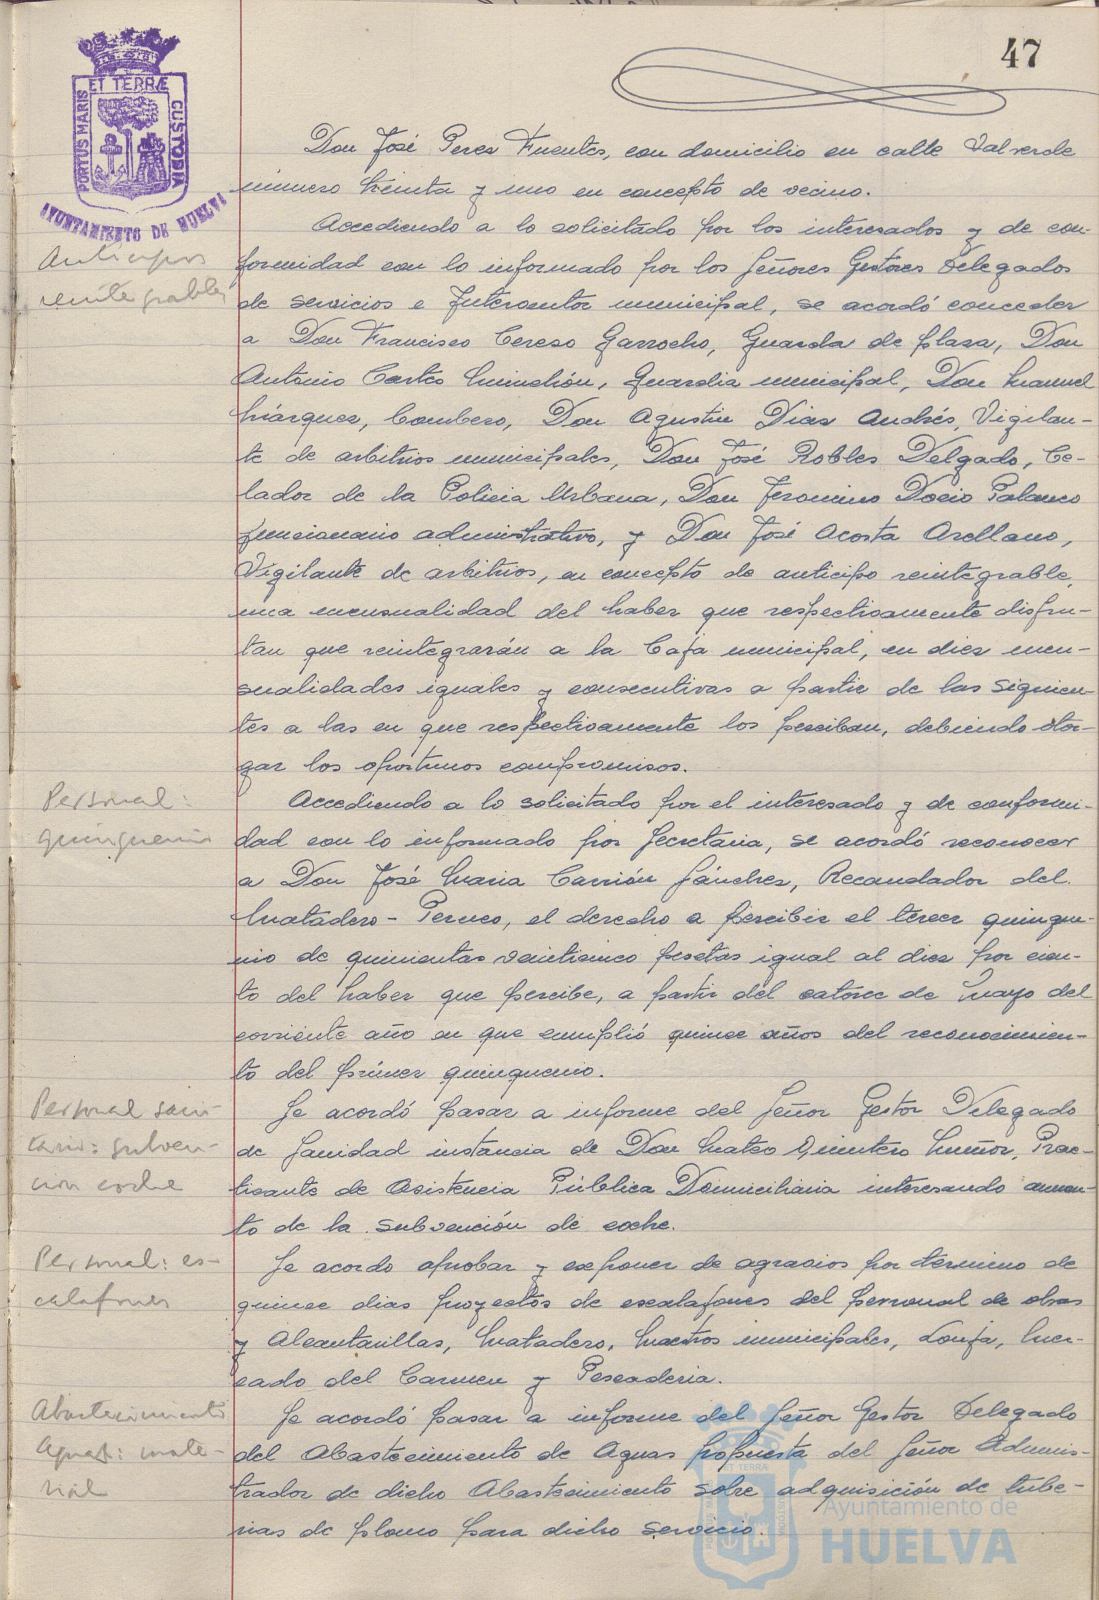 47
ET TERRÆ
PORTUS MARIS
CUSTODIA
AYUNTAMIENTO DE HUELVA
Don José Perez Fuentes, con domicilio en calle Valverde
número treinta y uno en concepto de vecino.
Anticipos
reintegrables
Accediendo a lo solicitado por los interesados y de con-
formidad con lo informado por los Señores Gestores Delegados
de servicios e Interventor municipal, se acordó conceder
a Don Francisco Cerezo Garrocho, Guarda de plaza, Don
Antonio Castro, Guardia municipal, Don Manuel
Márquez, Bombero, Don Agustin Diaz Andrés, Vigilan-
te de arbitrios municipales, Don José Robles Delgado, Ce-
lador de la Policia Urbana, Don Jeronimo Docio Palanco
funcionario administrativo, y Don José Acosta Arellano,
Vigilante de arbitrios, en concepto de anticipo reintegrable,
una mensualidad del haber que respectivamente disfru-
tan que reintegrarán a la Caja municipal, en diez men-
sualidades iguales y consecutivas a partir de las siguien-
tes a las en que respectivamente los perciban, debiendo otor-
gar los oportunos compromisos.
Personal:
quinquenio
Accediendo a lo solicitado por el interesado y de conformi-
dad con lo informado por Secretaria, se acordó reconocer
a Don José Maria Carrión Sánchez, Recaudador del
Matadero-Peruco, el derecho a percibir el tercer quinque-
nio de quinientas veinticinco pesetas igual al diez por cien-
to del haber que percibe, a partir del catorce de Mayo del
corriente año en que cumplió quince años del reconocimien-
to del primer quinquenio.
Personal sani-
tario: subven-
ción coche
Se acordó pasar a informe del Señor Gestor Delegado
de Sanidad instancia de Don Mateo Quintero Muñoz, Prac-
ticante de Asistencia Pública Domiciliaria interesando aumen-
to de la subvención de coche.
Personal: es-
calafones
Se acordo aprobar y exponer de agravios por término de
quince dias proyectos de escalafones del personal de obras
y Alcantarillas, Matadero, Maestros municipales, Lonja, Mer-
cado del Carmen y Pescaderia.
Abastecimiento
Aguas: mate-
rial
Se acordó pasar a informe del Señor Gestor Delegado
del Abastecimiento de Aguas propuesta del Señor Adminis-
trador de dicho Abastecimiento sobre adquisición de tube-
rias de plomo para dicho servicio.
Ayuntamiento de
HUELVA